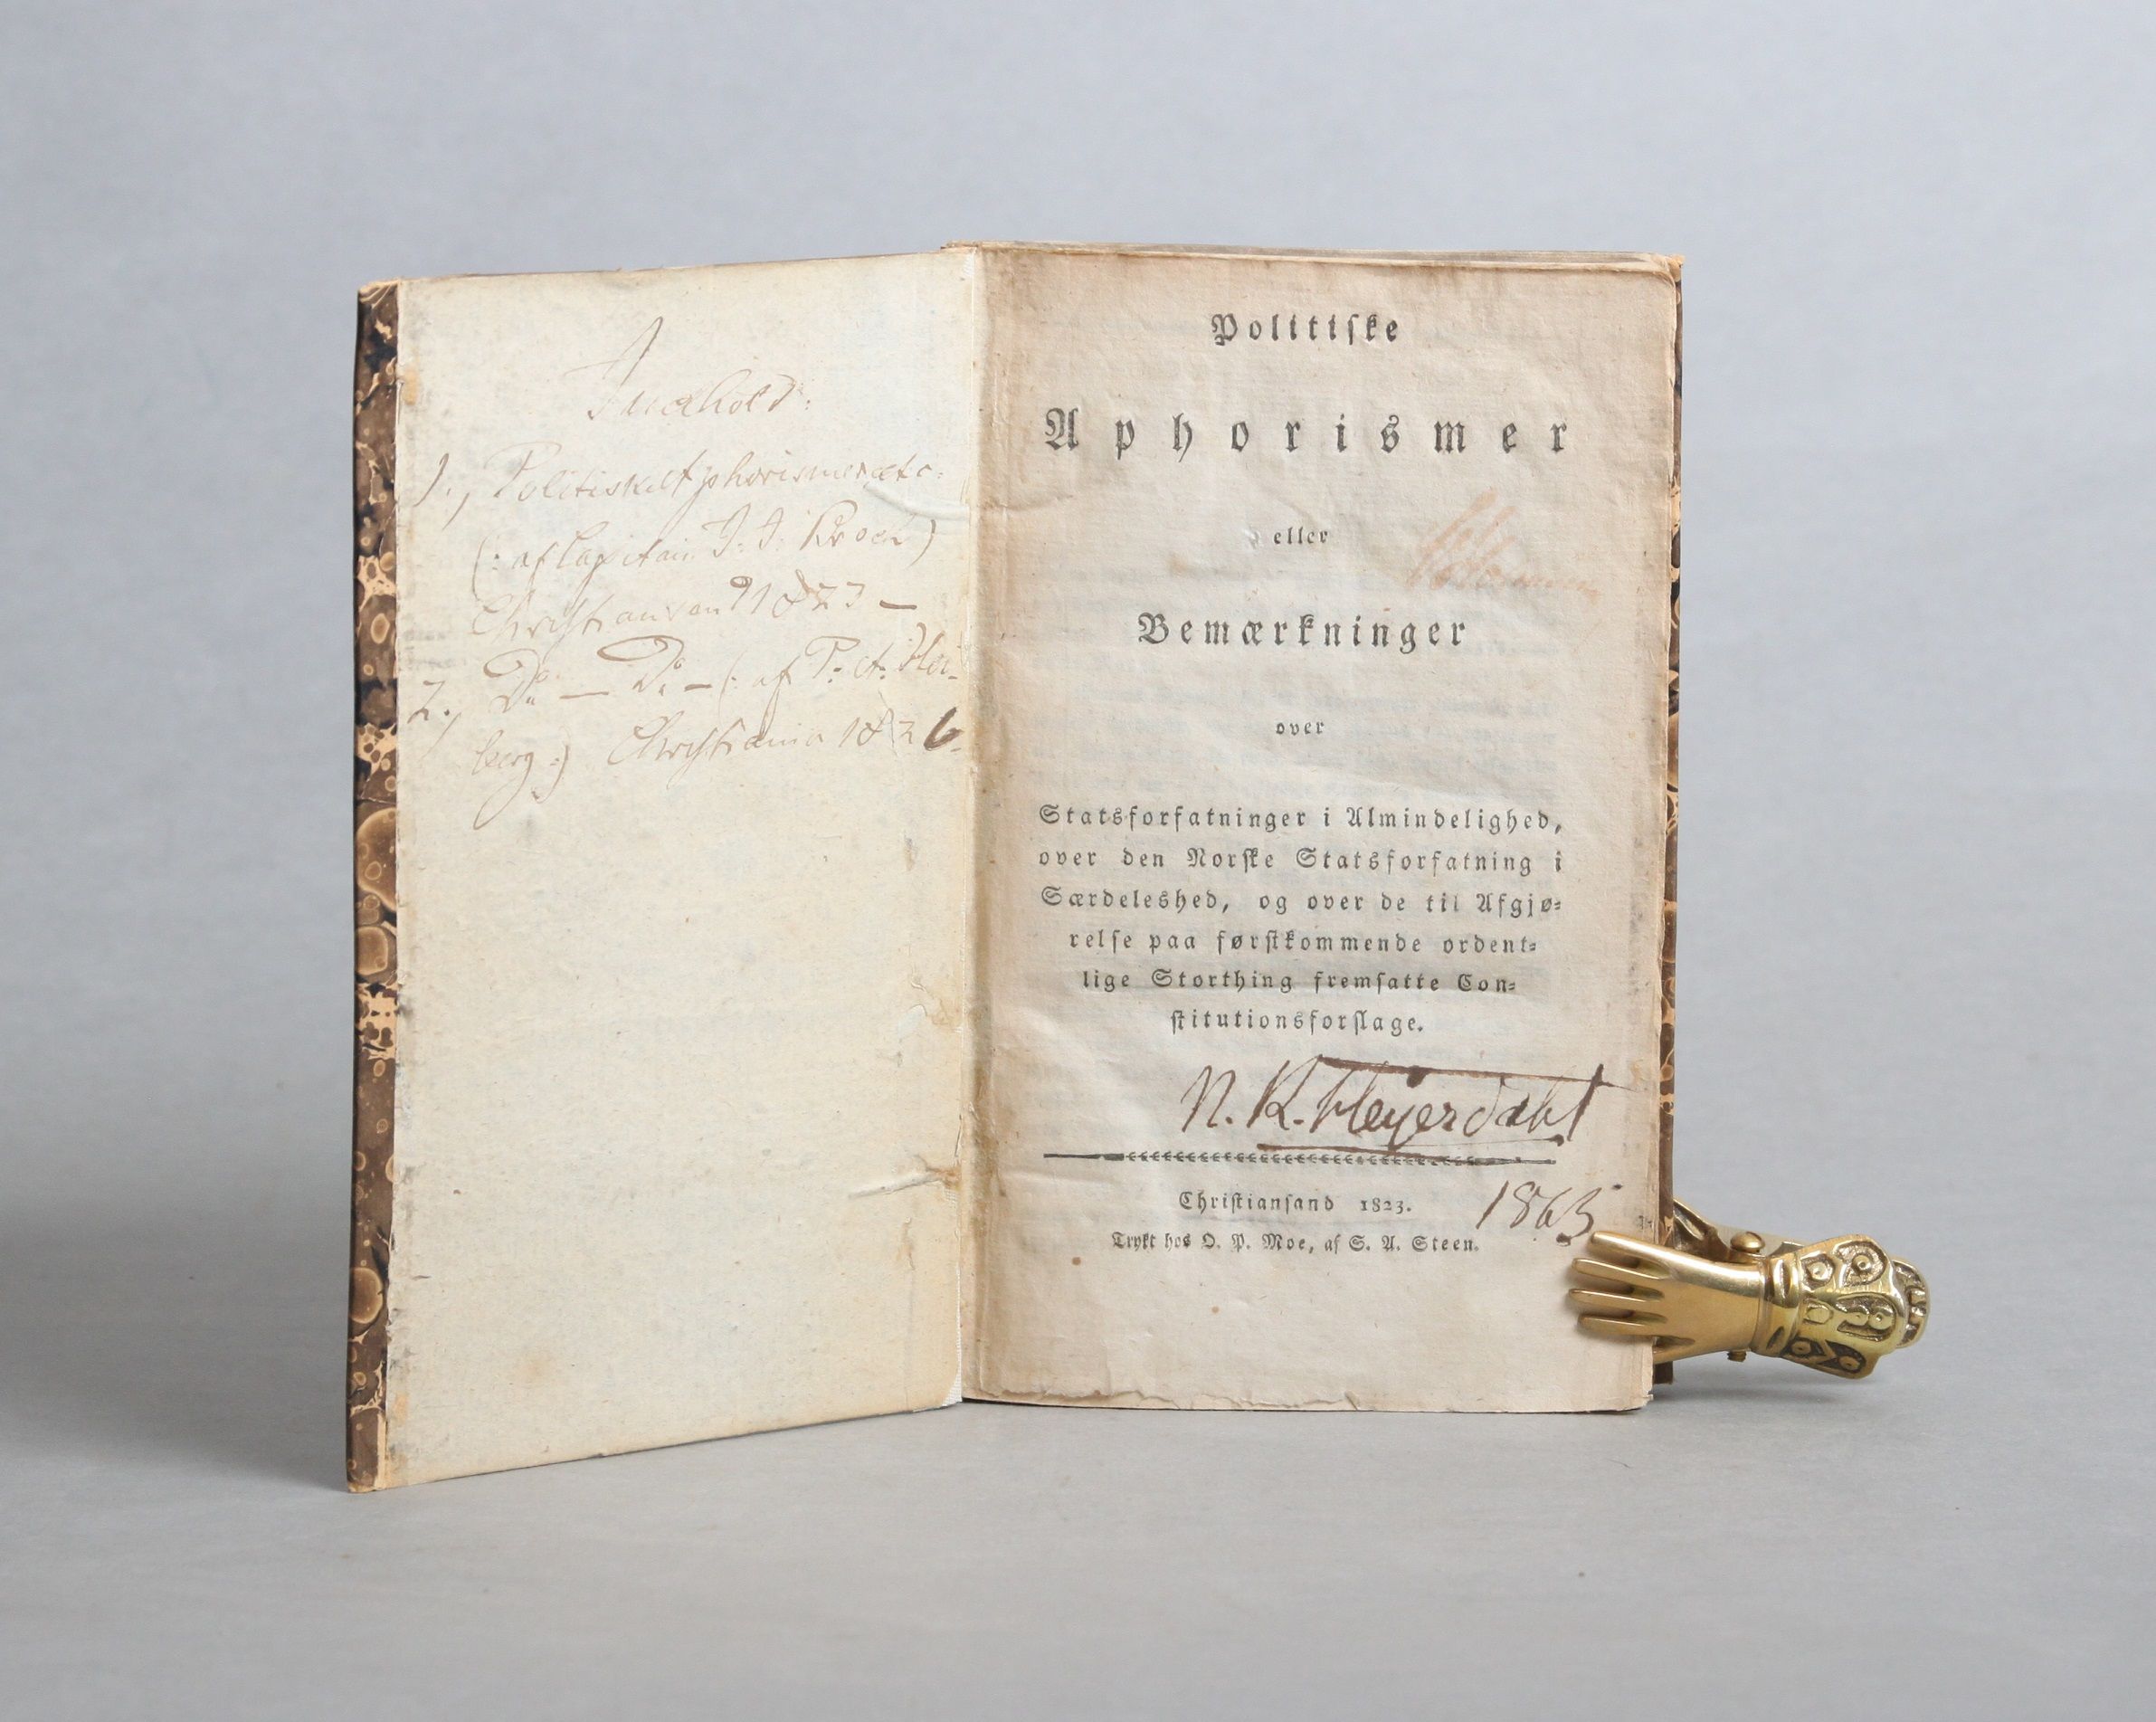 Indhold:
1., Politiske Aphorismer etc:
(: af Capitain J: J: Kroch)
Christiansand 1823 —
2., Do — Do — (: af P: A: Hei-
berg :) Christiania 1826.
Politiſke
Aphorismer
eller
Bemærkninger
over
Statsforfatninger i Almindelighed,
over den Norſke Statsforfatning i
Særdeleshed, og over de til Afgjø=
relſe paa førſtkommende ordent=
lige Storthing fremſatte Con=
ſtitutionsforſlage.
N. K. Heyerdahl
Chriſtianſand 1823.
1863
Trykt hos O. P. Moe, af S. A. Steen.